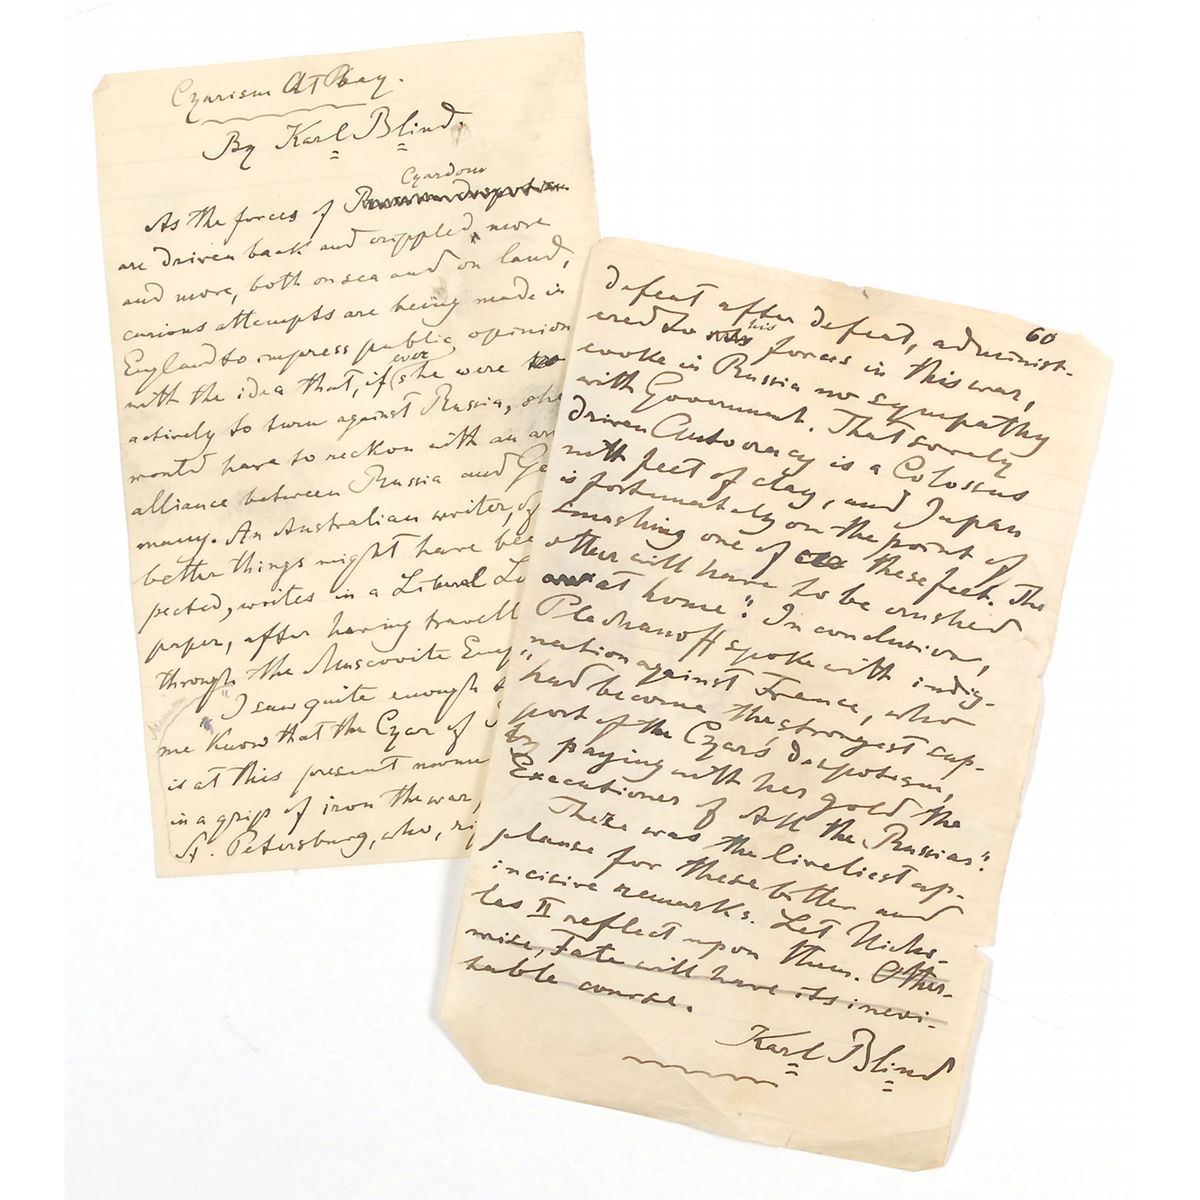 Czarism At Bay.
By Karl Blind.
Czardom
As the forces of
are driven back and crippled, more
and more, both on sea and on land,
curious attempts are being made in
England to impress public opinion
with the idea that, if ever she were
actively to turn against Russia, she
would have to reckon with an
alliance between Russia and Ge
many. An Australian writer, of
better things might have bee
pected, writes in a Liberal
paper, after having travell
through the Muscovite Emp
"I saw quite enough
me know that the Czar of
is at this present
in a grip of iron the war,
St. Petersburg, who,
60
defeat after defeat, administ-
ered to his forces in this war,
evoke in Russia no sympathy
with Government. That sorely
driven Autocracy is a Colossus
with feet of clay, and Japan
is fortunately on the point of
smashing one of these feet. The
other will have to be crushed
at home". In conclusion,
Plechanoff spoke with indig-
nation against France, who
"had become the strongest sup-
port of the Czar's despotism,
by paying with her gold the
Executioner of All the Russias".
There was the liveliest ap-
plause for these bitter and
incisive remarks. Let Nicho-
las II reflect upon them. Other-
wise, Fate will have its inevi-
table course.
Karl Blind